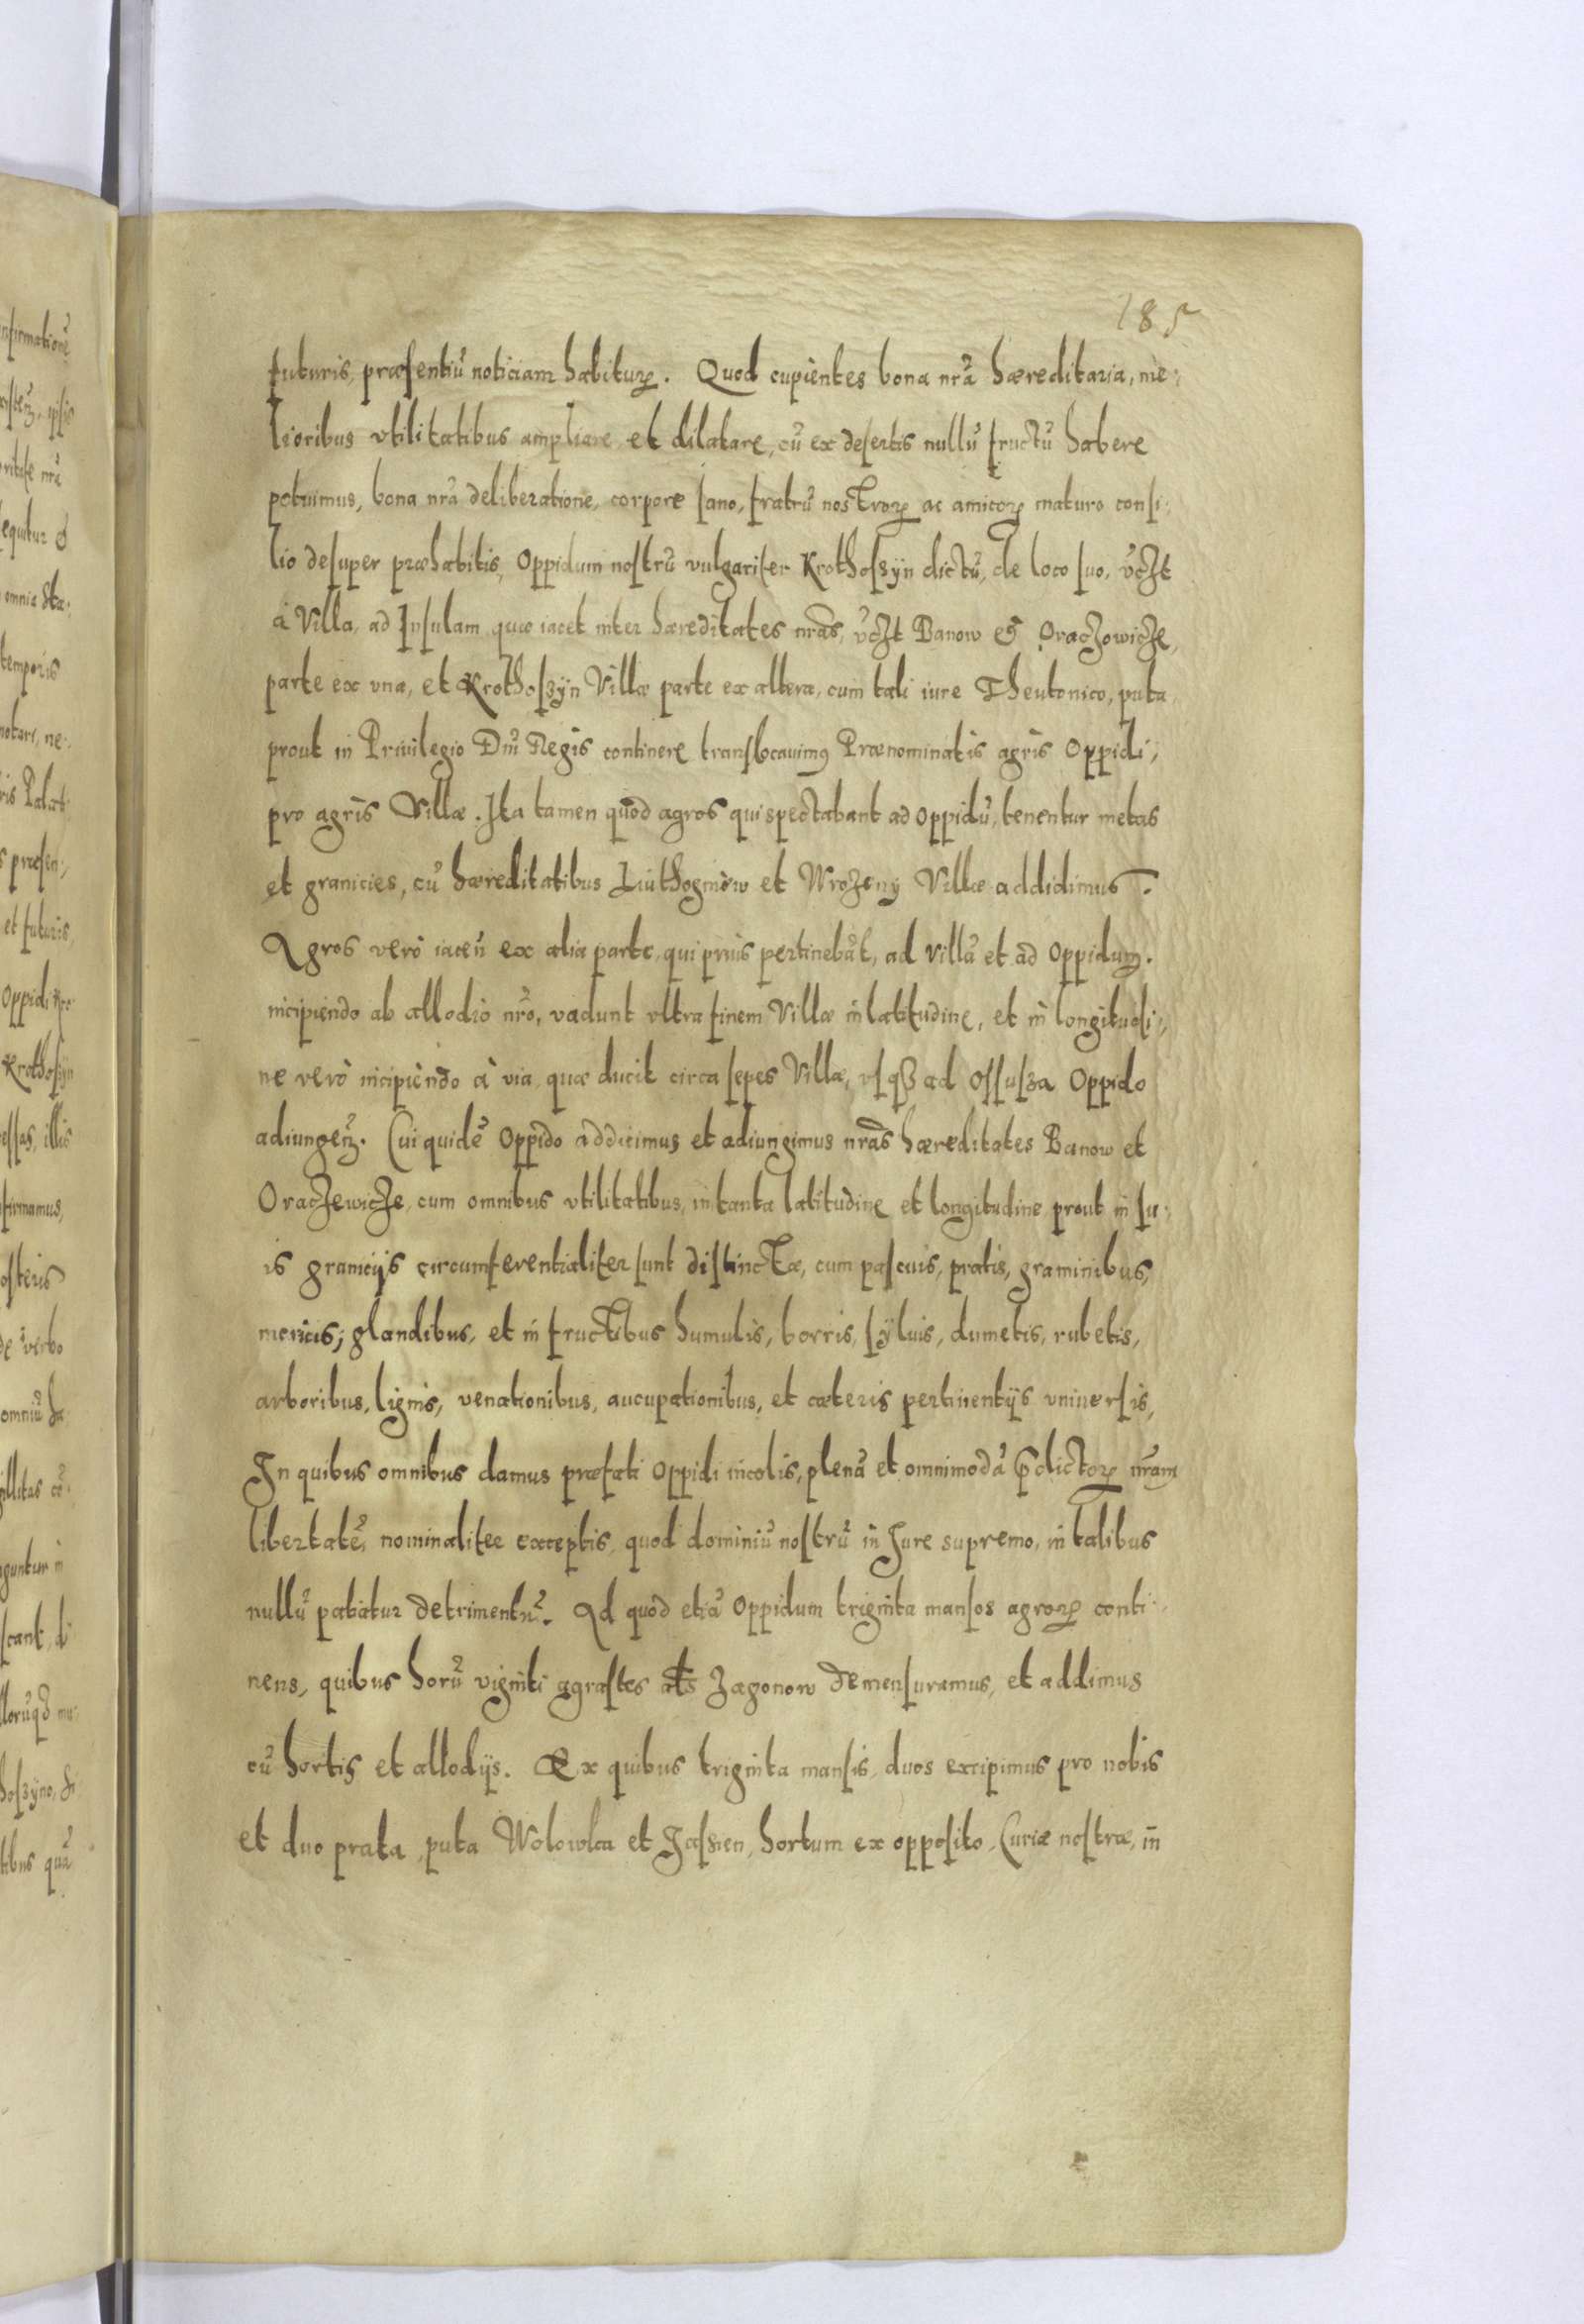 185
futuris, præsentiũ noticiam habituꝝ. Quod cupientes bona nrã hæreditaria, me,
lioribus vtilitatibus ampliare et dilatare, cũ ex desertis nullũ fructũ habere
potuimus, bona nrã deliberatione, corpore sano, fratrũ nostroꝝ ac amicoꝝ maturo consi,
lio desuper præhabitis, Oppidum nostrũ vulgariter Krothoszÿn dictũ, de loco suo, včꝫt
à Villa, ad Insulam quæ iacet inter hæreditates nrãs, včꝫt Banow et Oraczowicze,
parte ex vna, et Krothoszÿn Villæ parte ex altera, cum tali iure Theutonico, puta
prout in Priuilegio Dnĩ Regis continere translocauimꝰ Prænominatis agris Oppidi,
pro agris Villæ. Ita tamen quod agros qui spectabant ad oppidũ, tenentur metas
et granicies, cũ hæreditatibus Liuthogniew et Wrozeny Villæ addidimus.
Agros verò iaceñ ex alia parte, qui prius pertinebãt, ad villã et ad Oppidum.
incipiendo ab allodio nrõ, vadunt vltra finem Villæ in latitudine, et in longitudi,
ne verò incipiendo à via quæ ducit circa sepes Villæ, vsqꝫ ad Ossusza Oppido
adiungeñ. Cui quidẽ Oppido addicimus et adiungimus nrãs hæreditates Banow et
Oraczewicze, cum omnibus vtilitatibus, in tanta latitudine et longitudine prout in su,
is granicijs circumferentialiter sunt distinctæ, cum pascuis, pratis, graminibus,
mericis, glandibus, et in fructibus humulis, borris, sÿluis, dumetis, rubetis,
arboribus, lignis, venationibus, aucupationibus, et cæteris pertinentijs vniuersis,
In quibus omnibus damus præfati Oppidi incolis, plenã et omnimodã p̃dictoꝝ nrãm
libertatẽ, nominaliter exceptis, quod dominiũ nostrũ in Jure supremo, in talibus
nullũ patiatur detrimentũ. Ad quod etiã Oppidum triginta mansos agroꝝ conti,
nens, quibus horũ viginti agrastes als Zagonow demensuramus, et addimus
cũ hortis et allodijs. Ex quibus triginta mansis, duos excipimus pro nobis
et duo prata, puta Wolowka et Jassien, hortum ex opposito, Curiæ nostræ, in